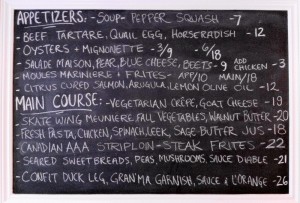 APPETIZERS: -SOUP- PEPPER SQUASH -7
-BEEF TARTARE, QUAIL EGG, HORSERADISH -12
-OYSTERS + MIGNONETTE - 3/9 - 6/18
-SALADE MAISON, PEAR, BLUE CHEESE, BEETS-9 ADD CHICKEN -3
-MOULES MARINIERE + FRITES- APP/10 MAIN/18
-CITRUS CURED SALMON, ARUGULA, LEMON OLIVE OIL -12
MAIN COURSE: -VEGETARIAN CRÊPE, GOAT CHEESE -19
-SKATE WING MEUNIERE, FALL VEGETABLES, WALNUT BUTTER -20
-FRESH PASTA, CHICKEN, SPINACH, LEEK, SAGE-BUTTER JUS -18
-CANADIAN AAA STRIPLOIN-STEAK FRITES -22
-SEARED SWEETBREADS, PEAS, MUSHROOMS, SAUCE DIABLE -21
-CONFIT DUCK LEG, GRAN'MA GARNISH, SAUCE À L'ORANGE -26